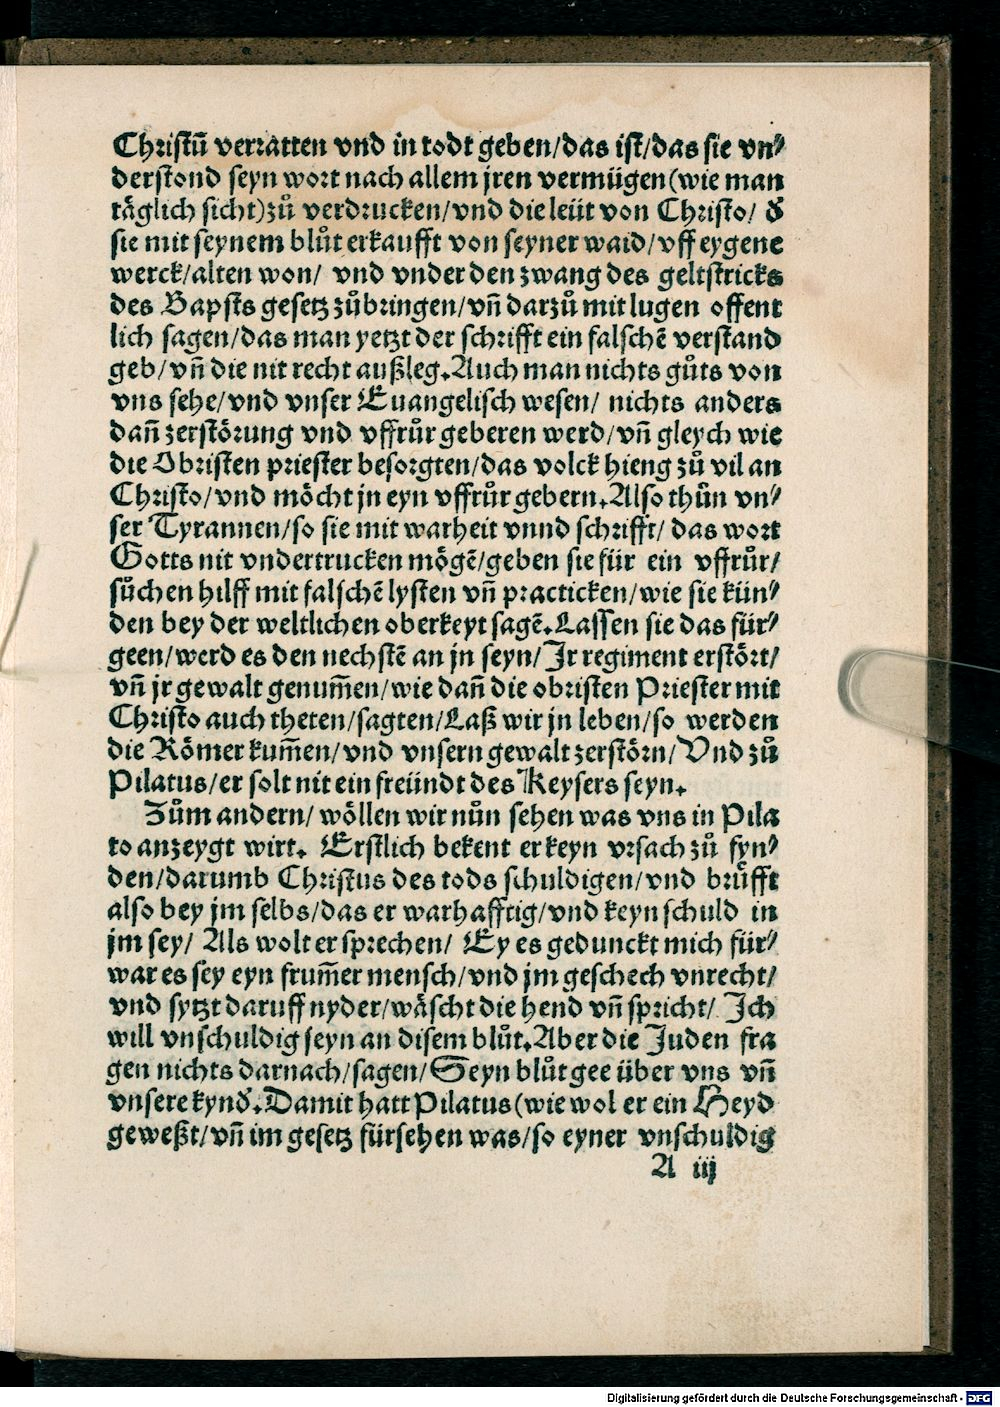 Christū verratten vnd in todt geben/das ist/das sie vn⸗
derstond seyn wort nach allem jren vermügen(wie man
täglich sicht)zů verdrucken/vnd die leüt von Christo/ ď
sie mit seynem blůt erkaufft von seyner waid/vff eygene
werck/alten won/ vnd vnder den zwang des geltstricks
des Bapsts gesetz zůbringen/vñ darzů mit lugen offent
lich sagen/das man yetzt der schrifft ein falschē verstand
geb/vñ die nit recht außleg.Auch man nichts gůts von
vns sehe/vnd vnser Euangelisch wesen/ nichts anders
dañ zerstörung vnd vffrůr geberen werd/vñ gleych wie
die Obristen priester besorgten/das volck hieng zů vil an
Christo/vnd möcht jn eyn vffrůr gebern.Also thůn vn⸗
ser Tyrannen/so sie mit warheit vnnd schrifft/ das wort
Gotts nit vndertrucken mögē/geben sie für ein vffrůr/
sůchen hilff mit falschē lysten vñ practicken/wie sie kün⸗
den bey der weltlichen oberkeyt sagē.Lassen sie das für⸗
geen/werd es den nechstē an jn seyn/Jr regiment erstört/
vñ jr gewalt genum̄en/wie dañ die obristen Priester mit
Christo auch theten/sagten/Laß wir jn leben/so werden
die Römer kum̄en/vnd vnsern gewalt zerstörn/Vnd zů
Pilatus/er solt nit ein freündt des Keysers seyn.
Zům andern/ wöllen wir nůn sehen was vns in Pila
to anzeygt wirt. Erstlich bekent er keyn vrsach zů fyn⸗
den/darumb Christus des tods schuldigen/vnd brüfft
also bey jm selbs/das er warhafftig/vnd keyn schuld in
jm sey/ Als wolt er sprechen/ Ey es gedunckt mich für⸗
war es sey eyn frum̄er mensch/vnd jm geschech vnrecht/
vnd sytzt daruff nyder/wäscht die hend vñ spricht/ Ich
will vnschuldig seyn an disem blůt.Aber die Juden fra
gen nichts darnach/sagen/Seyn blůt gee über vns vñ
vnsere kynď.Damit hatt Pilatus(wie wol er ein Heyd
geweßt/vñ im gesetz fürsehen was/so eyner vnschuldig
A iij
Digitalisierung gefördert durch die Deutsche Forschungsgemeinschaft - DFG